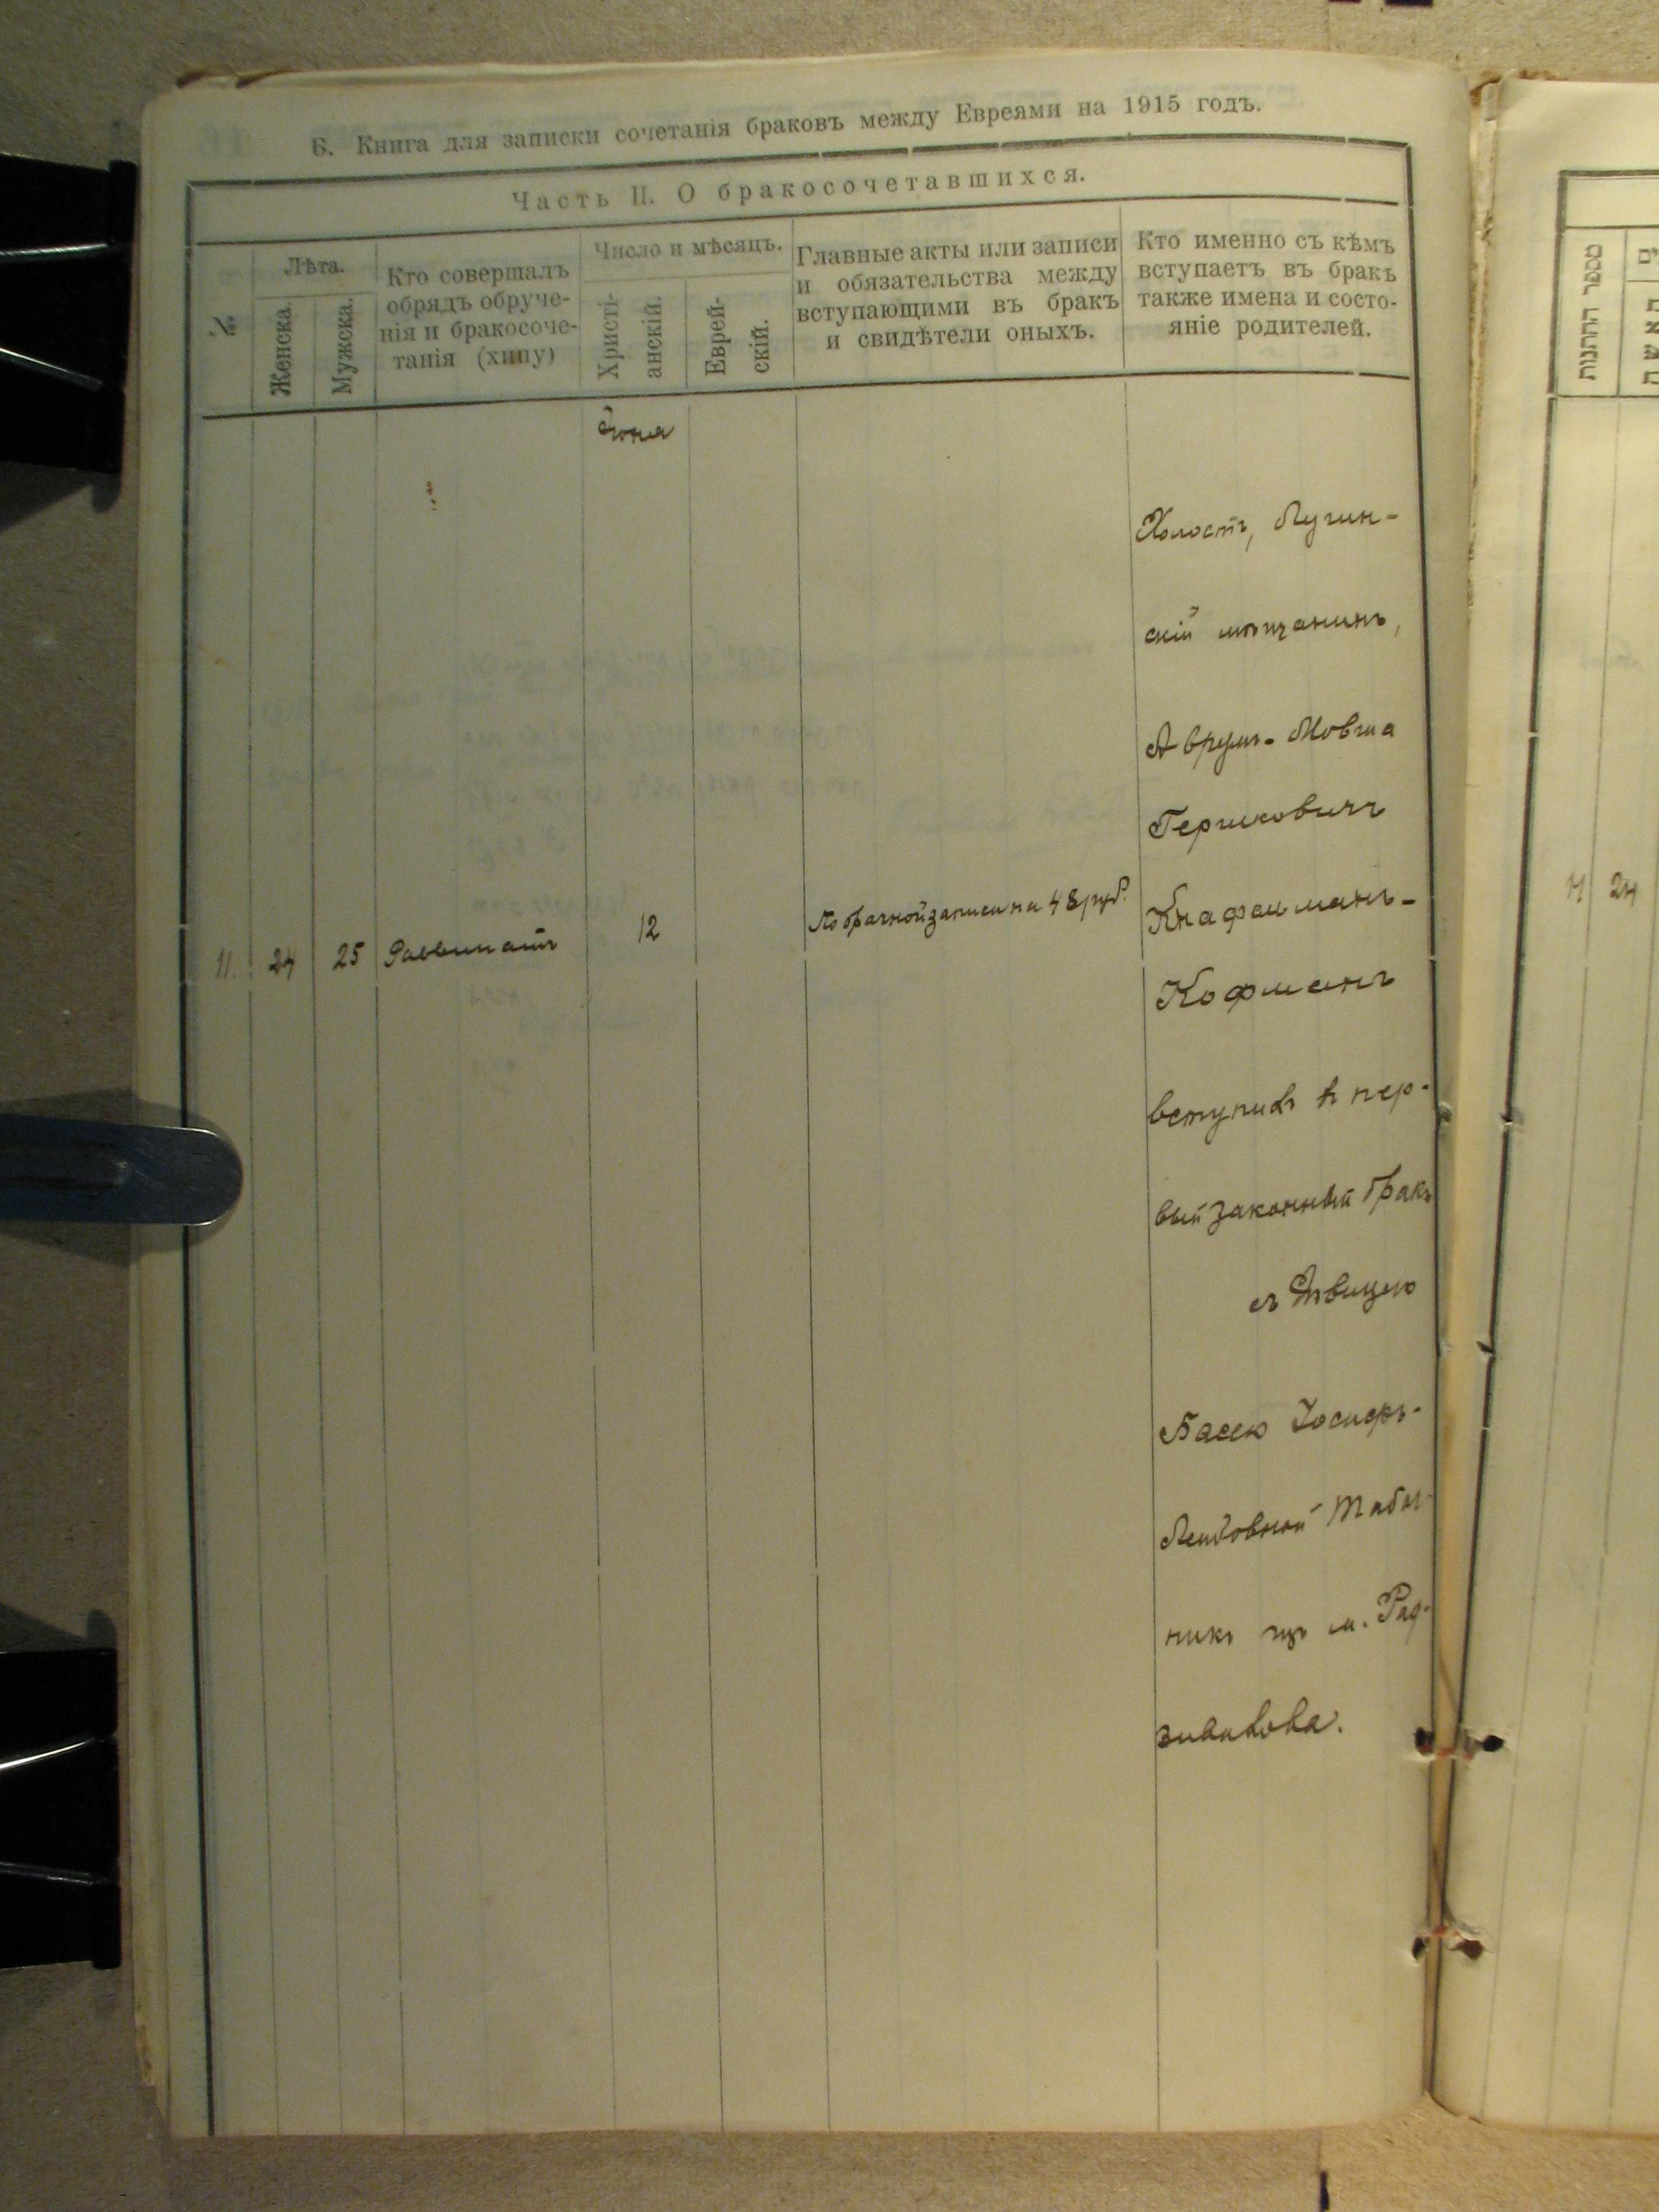 Б. Книга для записки сочетанія браковъ между Евреями на 1915 годъ.
Часть II. О бракосочетавшихся.
№
Лѣта.
Женска.
Мужска.
Кто совершалъ
обрядъ обруче-
нія и бракосоче-
танія (хипу)
Число и мѣсяцъ.
Христі-
анскій.
Еврей-
скій.
Главные акты или записи
и обязательства между
вступающими въ бракъ
и свидѣтели оныхъ.
Кто именно съ кѣмъ
вступаетъ въ бракъ
также имена и состо-
яніе родителей.
Холостъ, Лугин-
скій мѣщанинъ,
Аврумъ-Мовша
Гершковичъ
11. 24 25 12 По брачной записи на 48 руб. Кнафельманъ-
Кофманъ
вступилъ въ пер-
вый законный бракъ
съ дѣвицею
Басею Іосифъ-
Лейбовной
никъ изъ м. Рад-
зивилова.
מספר החתנות
האשה
11 24